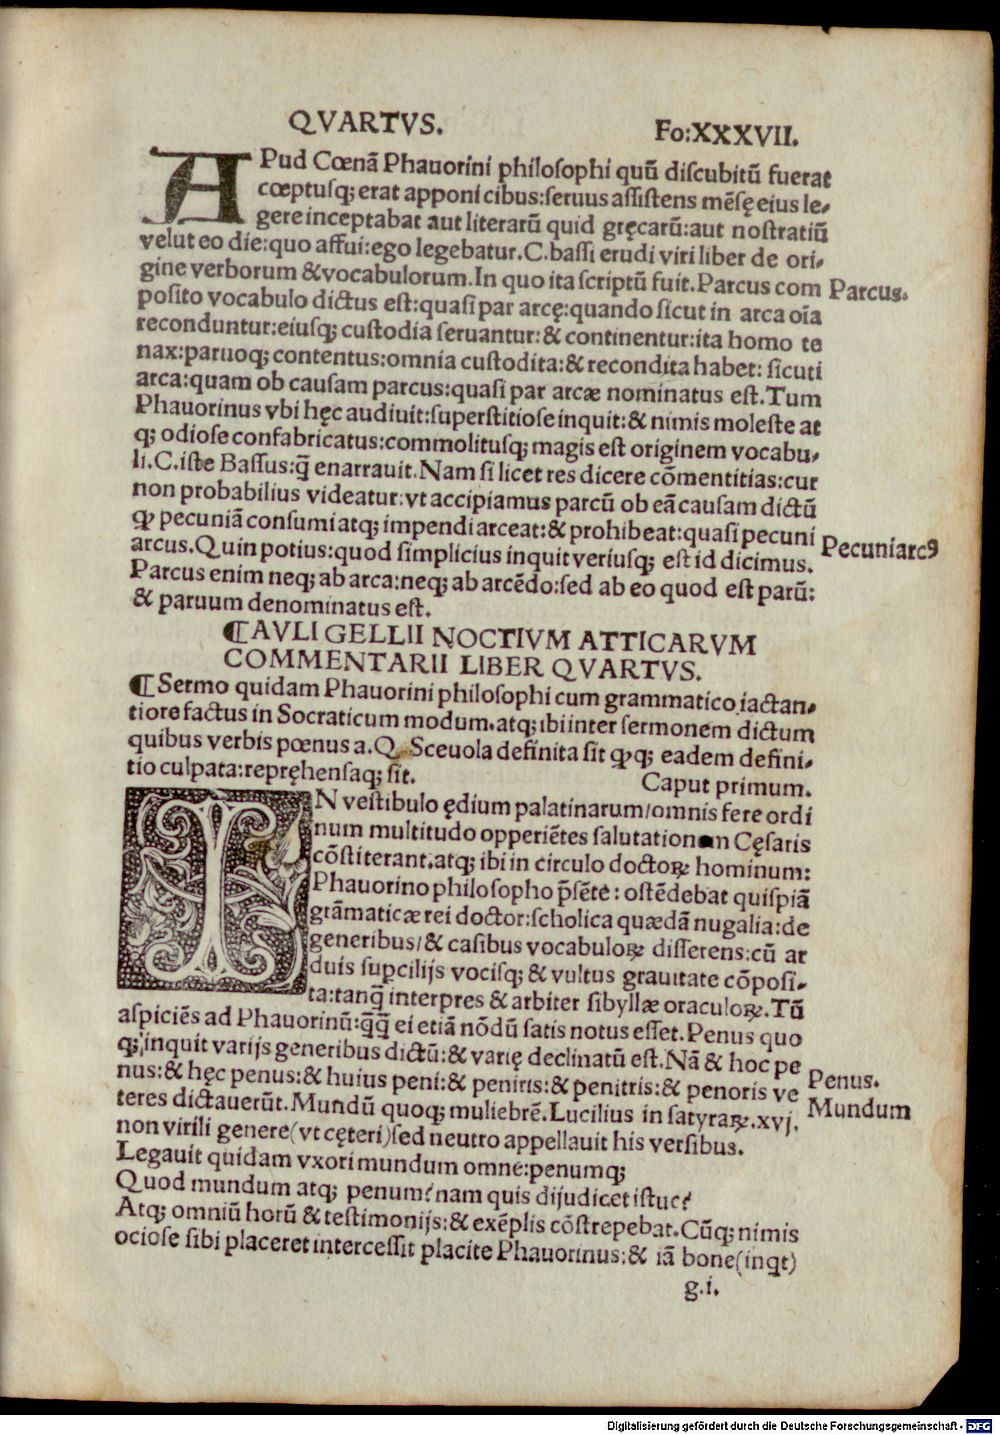 QVARTVS. Fo:XXXVII.
APud Cœnā Phauorini philosophi quū discubitū fuerat
cœptusq; erat apponi cibus:seruus assistens mēsę eius le-
gere inceptabat aut literarū quid gręcarū:aut nostratiū
velut eo die:quo affui:ego legebatur.C.bassi erudi viri liber de ori-
gine verborum &vocabulorum.In quo ita scriptū fuit.Parcus com
Parcus.
posito vocabulo dictus est:quasi par arcę:quando sicut in arca oīa
reconduntur:eiusq; custodia seruantur:& continentur:ita homo te
nax:paruoq; contentus:omnia custodita:& recondita habet: sicuti
arca:quam ob causam parcus:quasi par arcæ nominatus est.Tum
Phauorinus vbi hęc audiuit:superstitiose inquit:& nimis moleste at
q; odiose confabricatus:commolitusq; magis est originem vocabu-
li.C.iste Bassus:q̄ enarrauit.Nam si licet res dicere cōmentitias:cur
non probabilius videatur:vt accipiamus parcū ob eā causam dictū
ꝙ pecuniā consumi atq; impendi arceat:& prohibeat:quasi pecuni
Pecuniarcꝰ
arcus.Quin potius:quod simplicius inquit veriusq; est id dicimus.
Parcus enim neq; ab arca:neq; ab arcēdo:sed ab eo quod est parū:
& paruum denominatus est.
¶AVLI GELLII NOCTIVM ATTICARVM
COMMENTARII LIBER QVARTVS.
¶Sermo quidam Phauorini philosophi cum grammatico iactan-
tiore factus in Socraticum modum.atq; ibi inter sermonem dictum
quibus verbis pœnus a.Q. Sceuola definita sit ꝙq; eadem defini-
tio culpata:repręhensaq; sit. Caput primum.
IN vestibulo ędium palatinarum/omnis fere ordi
num multitudo opperiētes salutationem Cęsaris
cōstiterant.atq; ibi in circulo doctoꝝ hominum:
Phauorino philosopho p̄sēte: ostēdebat quispiā
grāmaticæ rei doctor:scholica quædā nugalia:de
generibus/& casibus vocabuloꝝ disserens:cū ar
duis supcilijs vocisq; & vultus grauitate cōposi-
ta:tanq̄ interpres & arbiter sibyllæ oraculoꝝ.Tū
aspiciēs ad Phauorinū:q̄q̄ ei etiā nōdū satis notus esset.Penus quo
q; inquit varijs generibus dictū:& varię declinatū est.Nā & hoc pe
nus:& hęc penus:& huius peni:& peniris:& penitris:& penoris ve
Penus.
teres dictauerūt.Mundū quoq; muliebrē.Lucilius in satyraꝝ.xvj.
Mundum
non virili genere(vt cęteri)sed neutro appellauit his versibus.
Legauit quidam vxori mundum omne:penumq;
Quod mundum atq; penum?nam quis dijudicet istuc?
Atq; omniū horū & testimonijs:& exēplis cōstrepebat.Cūq; nimis
ociose sibi placeret intercessit placite Phauorinus:& iā bone(inqt)
g.i.
Digitalisierung gefördert durch die Deutsche Forschungsgemeinschaft - DFG